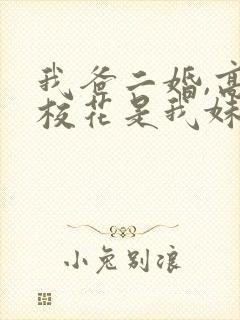 我爸二婚,高
校花是我妹
小兔别浪